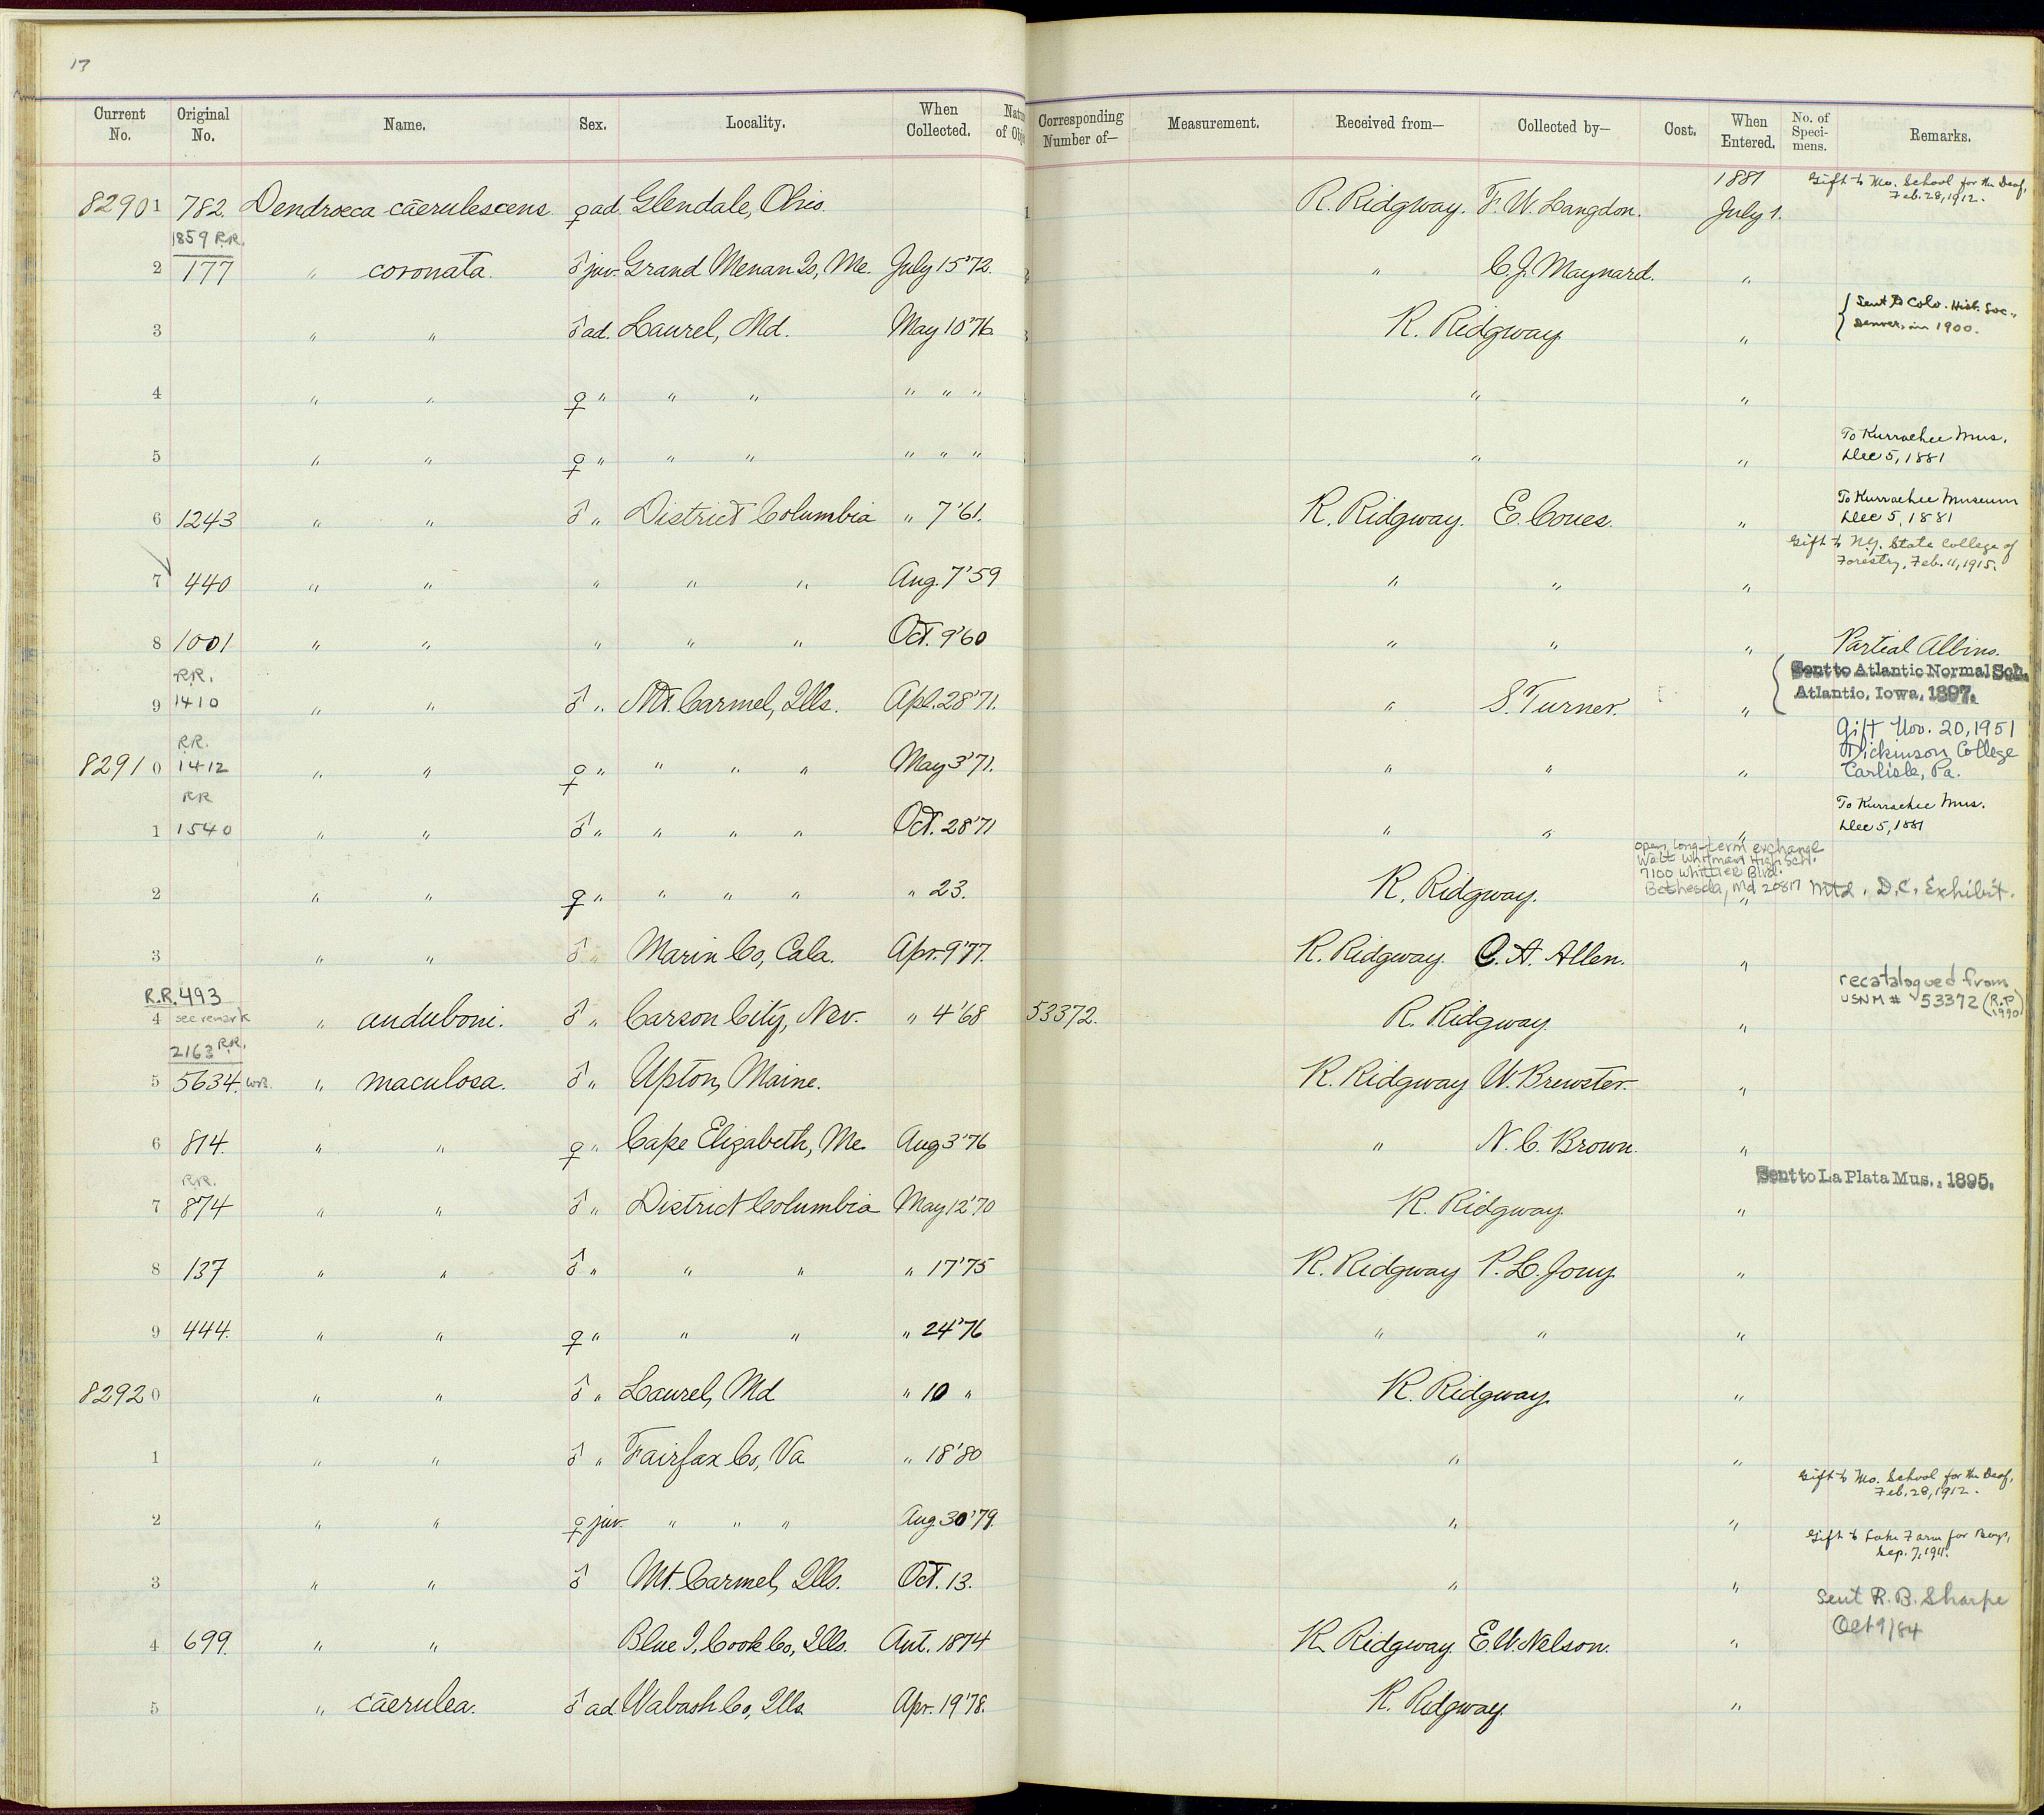 17
Current No. Original No. Name. Sex. Locality. When Collected. Natu of Obje Corresponding Number of— Measurement. Received from— Collected by— Cost. When Entered. No. of Speci-mens. Remarks.
82901 782. Dendroeca cærulescens. ♀ ad. Glendale, Ohio. R. Ridgway. F. W. Langdon. 1881 July 1. Gift to Mo. School for the Deaf, Feb. 28, 1912.
1859 R.R.
2 177 " coronata. ♂ juv. Grand Menan Is, Me. July 15 '72. " C. J. Maynard. "
3 " " ♂ ad. Laurel, Md. May 10 '76 R. Ridgway. " Sent to Colo. Hist. Soc., Denver, in 1900.
4 " " ♀ " " " " " " " "
5 " " ♀ " " " " " " " " To Kurrachee Mus. Dec 5, 1881
6 1243 " " ♂ " District Columbia " 7 '61. R. Ridgway. E. Coues. " To Kurrachee Museum Dec 5, 1881
7 440 " " " " " Aug. 7 '59 " " " Gift to N.Y. State College of Forestry, Feb. 11, 1915.
8 1001 " " " " " Oct. 9 '60 " " " Partial Albino.
R.R.
9 1410 " " ♂ " Mt. Carmel, Ills. Apl. 28 '71. " S. Turner. " Sent to Atlantic Normal Sch. Atlantic, Iowa, 1897.
R.R.
82910 1412 " " ♀ " " " " May 3 '71. " " " Gift Nov. 20, 1951 Dickinson College Carlisle, Pa.
RR
1 1540 " " ♂ " " " " Oct. 28 '71 " " " To Kurrachee Mus. Dec 5, 1881
open, long-term exchange
Walt Whitman High Sch.
7100 Whittier Blvd.
Bethesda, Md 20817
2 " " ♀ " " " " " 23. R. Ridgway. " Mtd. D.C. Exhibit.
3 " " ♂ " Marin Co, Cala. Apr. 9 '77. R. Ridgway. C. A. Allen. "
R.R. 493
4 see remark " auduboni. ♂ " Carson City, Nev. " 4 '68 53372. R. Ridgway. " recatalogued from USNM # 53372 (R.P. 1990)
2163 R.R.
5 5634. WB. " maculosa. ♂ " Upton, Maine. R. Ridgway W. Brewster. "
6 814. " " ♀ " Cape Elizabeth, Me. Aug 3 '76 " N. C. Brown. "
R.R.
7 874 " " ♂ " District Columbia May 12 '70 R. Ridgway. " Sent to La Plata Mus., 1895.
8 137 " " ♂ " " " " 17 '75 R. Ridgway P. L. Jouy. "
9 444. " " ♀ " " " " 24 '76 " " "
82920 " " ♂ " Laurel, Md " 10 " R. Ridgway. "
1 " " ♂ " Fairfax Co, Va " 18 '80 " "
2 " " ♀ juv. " " " Aug. 30 '79. " " Gift to Mo. School for the Deaf, Feb. 28, 1912.
3 " " ♂ Mt. Carmel, Ills. Oct. 13. " " Gift to Lake Farm for Boys, Sep. 7, 1911.
4 699. " " Blue I, Cook Co, Ills. Aut. 1874 R. Ridgway. E. W. Nelson. " Sent R. B. Sharpe Oct 9/84
5 " cærulea. ♂ ad. Wabash Co, Ills. Apr. 19 '78. R. Ridgway. "